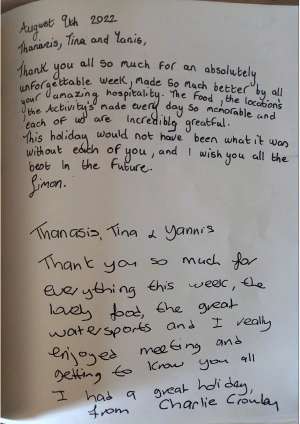 August 9th 2022
Thanasis, Tina and Yanis,
Thank you all so much for an absolutely
unforgettable week, made so much better by all
your amazing hospitality. The food, the location's
, the Activity's made every day so memorable and
each of us are incredibly greatful.
This holiday would not have been what it was
without each of you, and I wish you all the
best in the future.
Simon.
Thanasis, Tina & Yannis
Thank you so much for
everything this week, the
lovely food, the great
watersports and I really
enjoyed meeting and
getting to know you all
I had a great holiday,
from Charlie Crowley